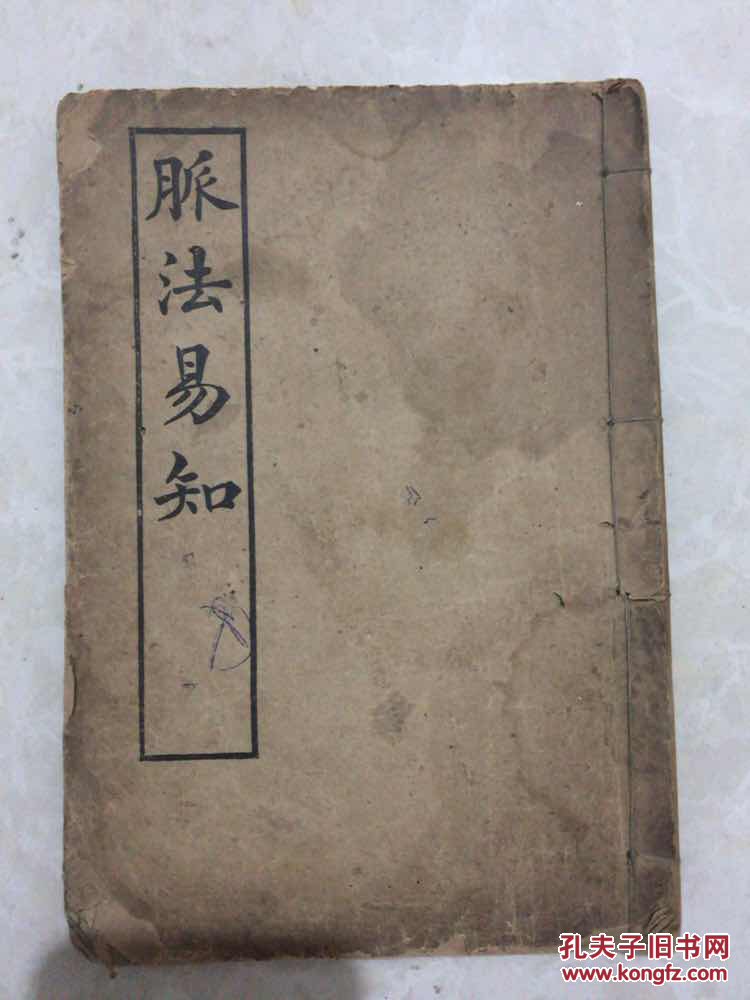 脈法易知
孔夫子旧书网
www.kongfz.com